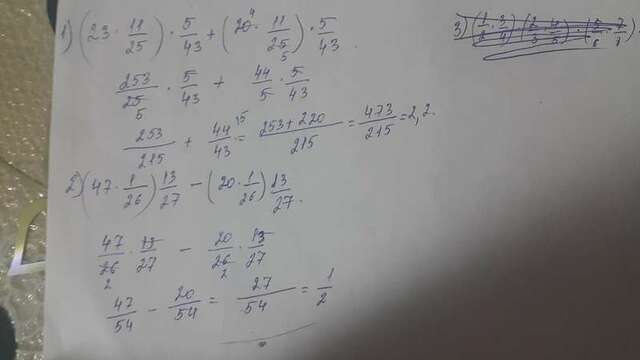 1) (23 · 11/25) · 5/43 + (20 · 11/25) · 5/43
253/25 · 5/43 + 44/5 · 5/43
253/215 + 44/43 = 253+220/215 = 473/215 = 2,2.
2) (47 · 1/26) 13/27 - (20 · 1/26) 13/27.
47/26 · 13/27 - 20/26 · 13/27
47/54 - 20/54 = 27/54 = 1/2